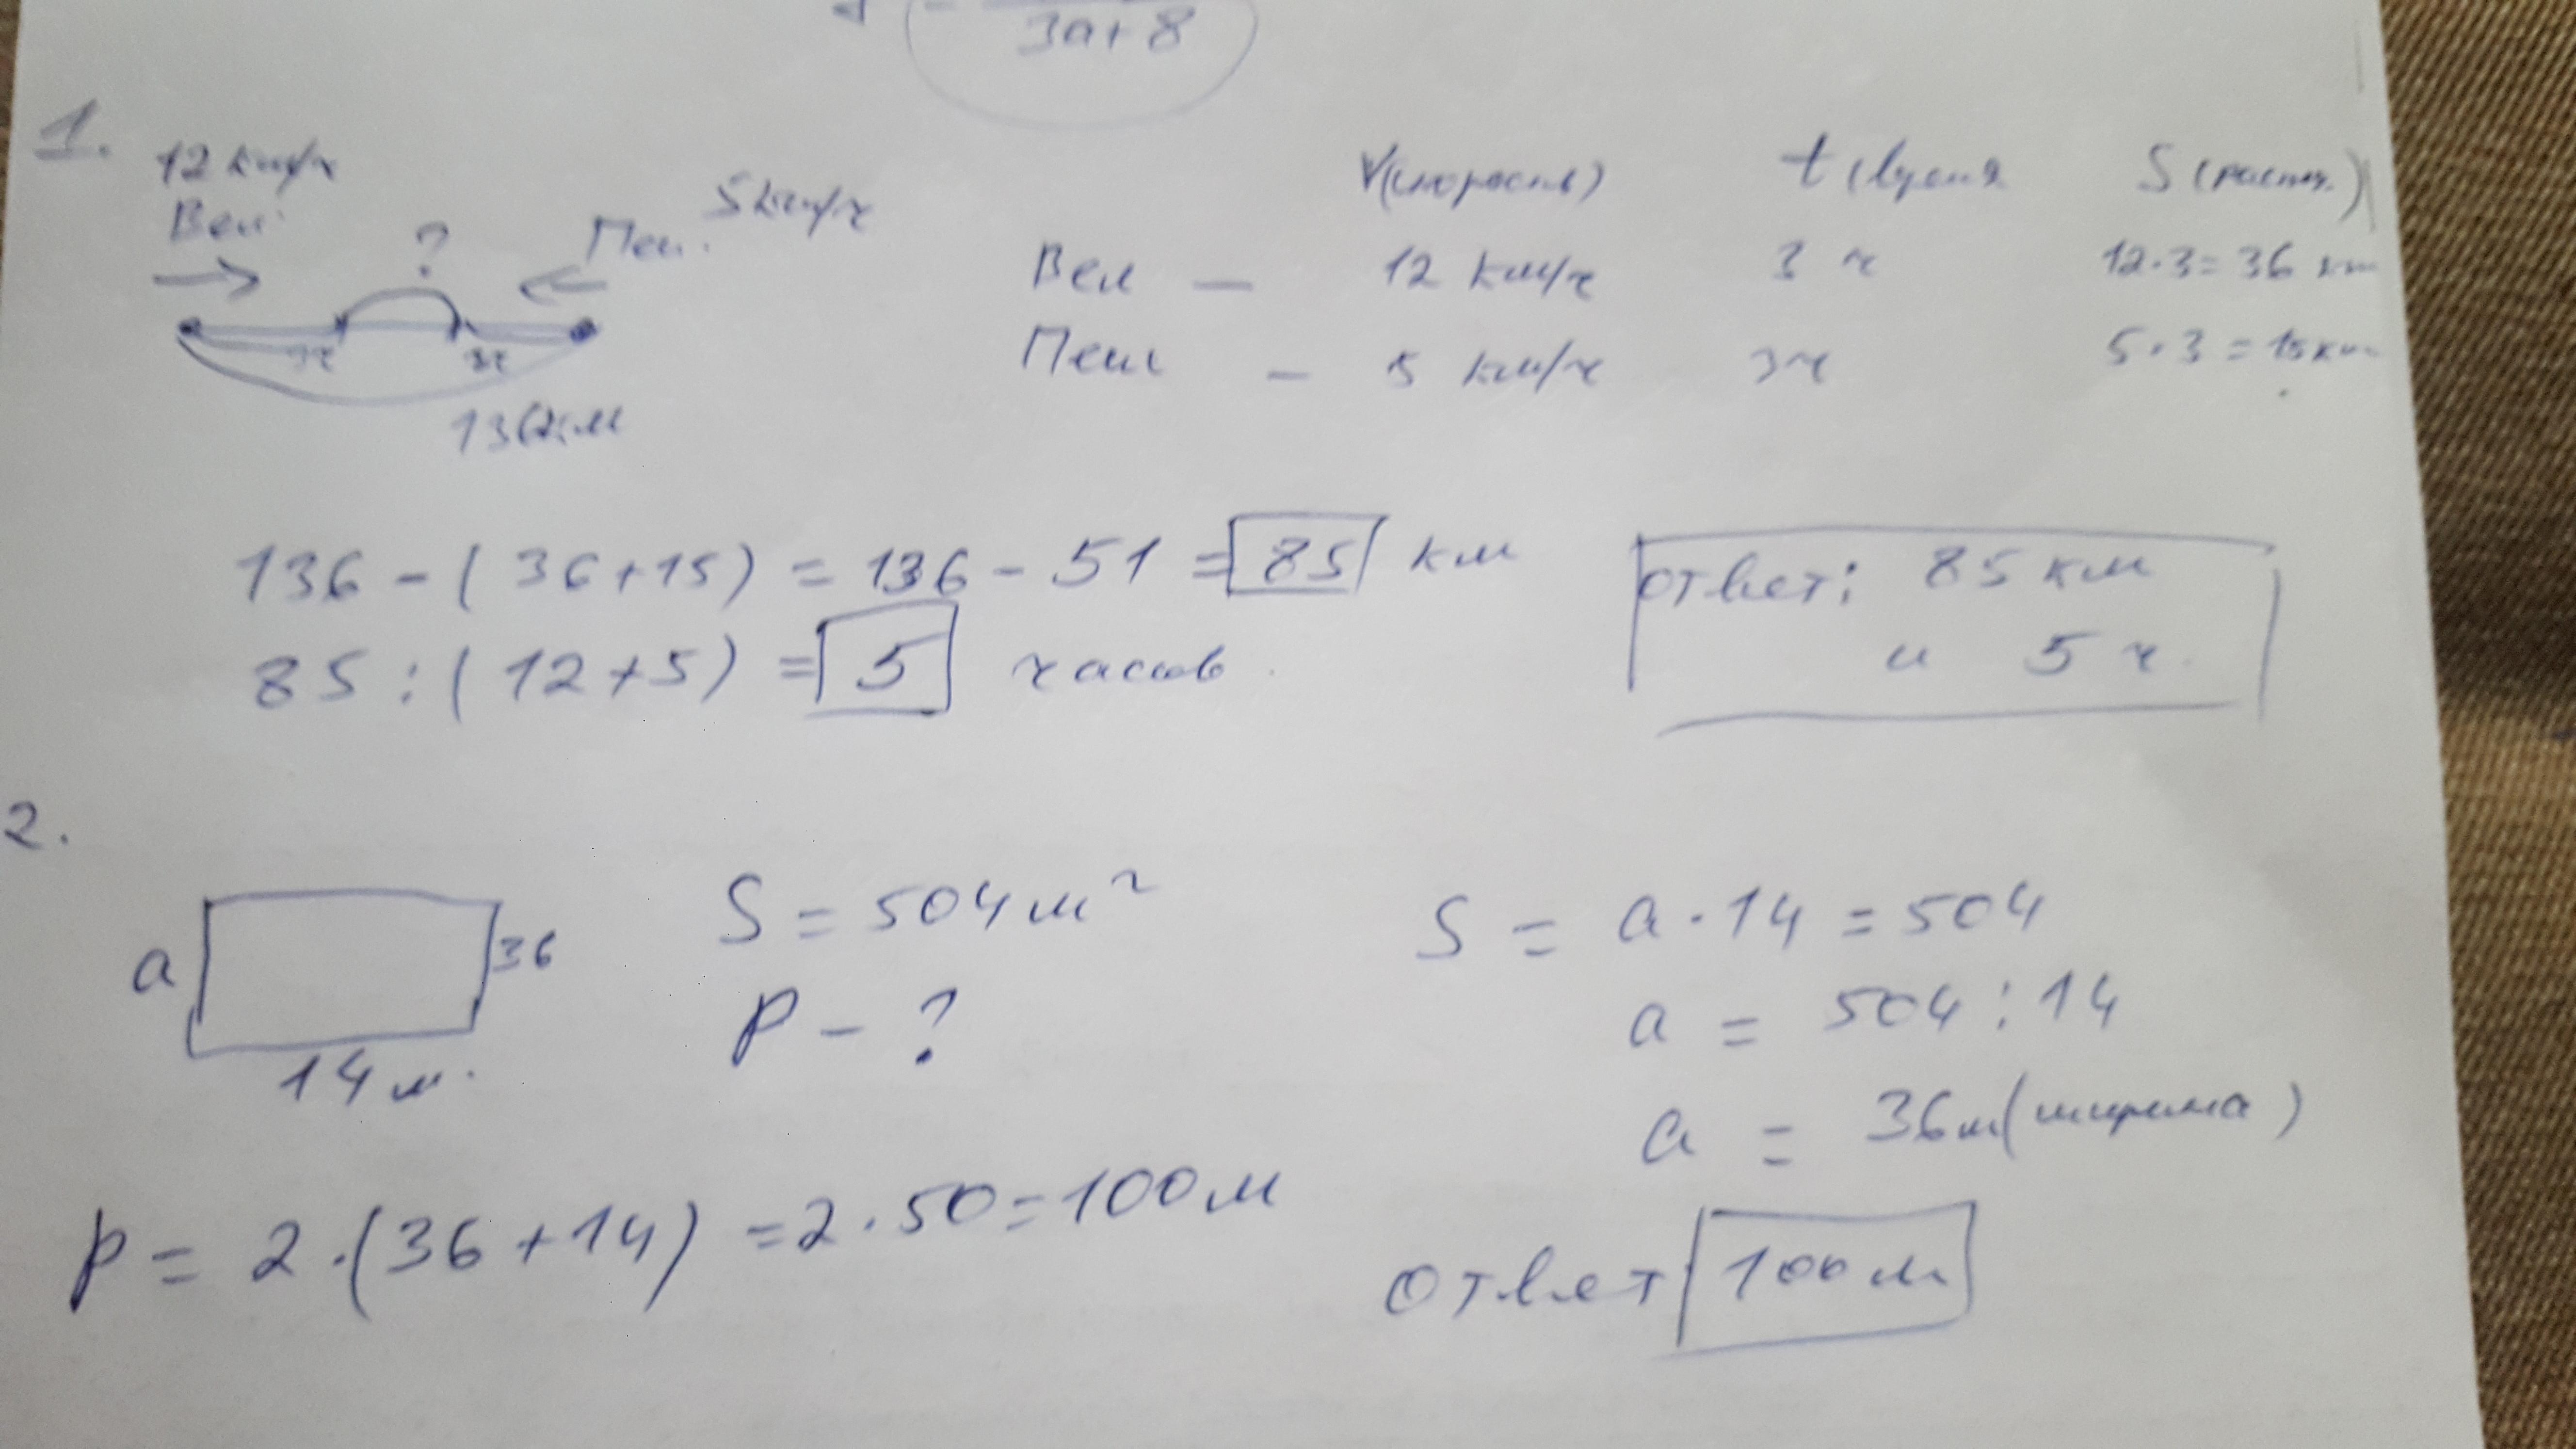 3a+8
1.
12 км/ч
Вел.
?
Пеш.
5 км/ч
3ч
3ч
136км
V(скорость) t(время S(расст.)
Вел — 12 км/ч 3 ч 12·3=36 км
Пеш — 5 км/ч 3ч 5·3=15км
136-(36+15)=136-51=85 км
85:(12+5)=5 часов.
ответ: 85 км
и 5 ч.
2.
a
36
14 м.
S=504м²
P-?
S=a·14=504
a=504:14
a=36м(ширина)
P=2·(36+14)=2·50=100м
ответ 100м